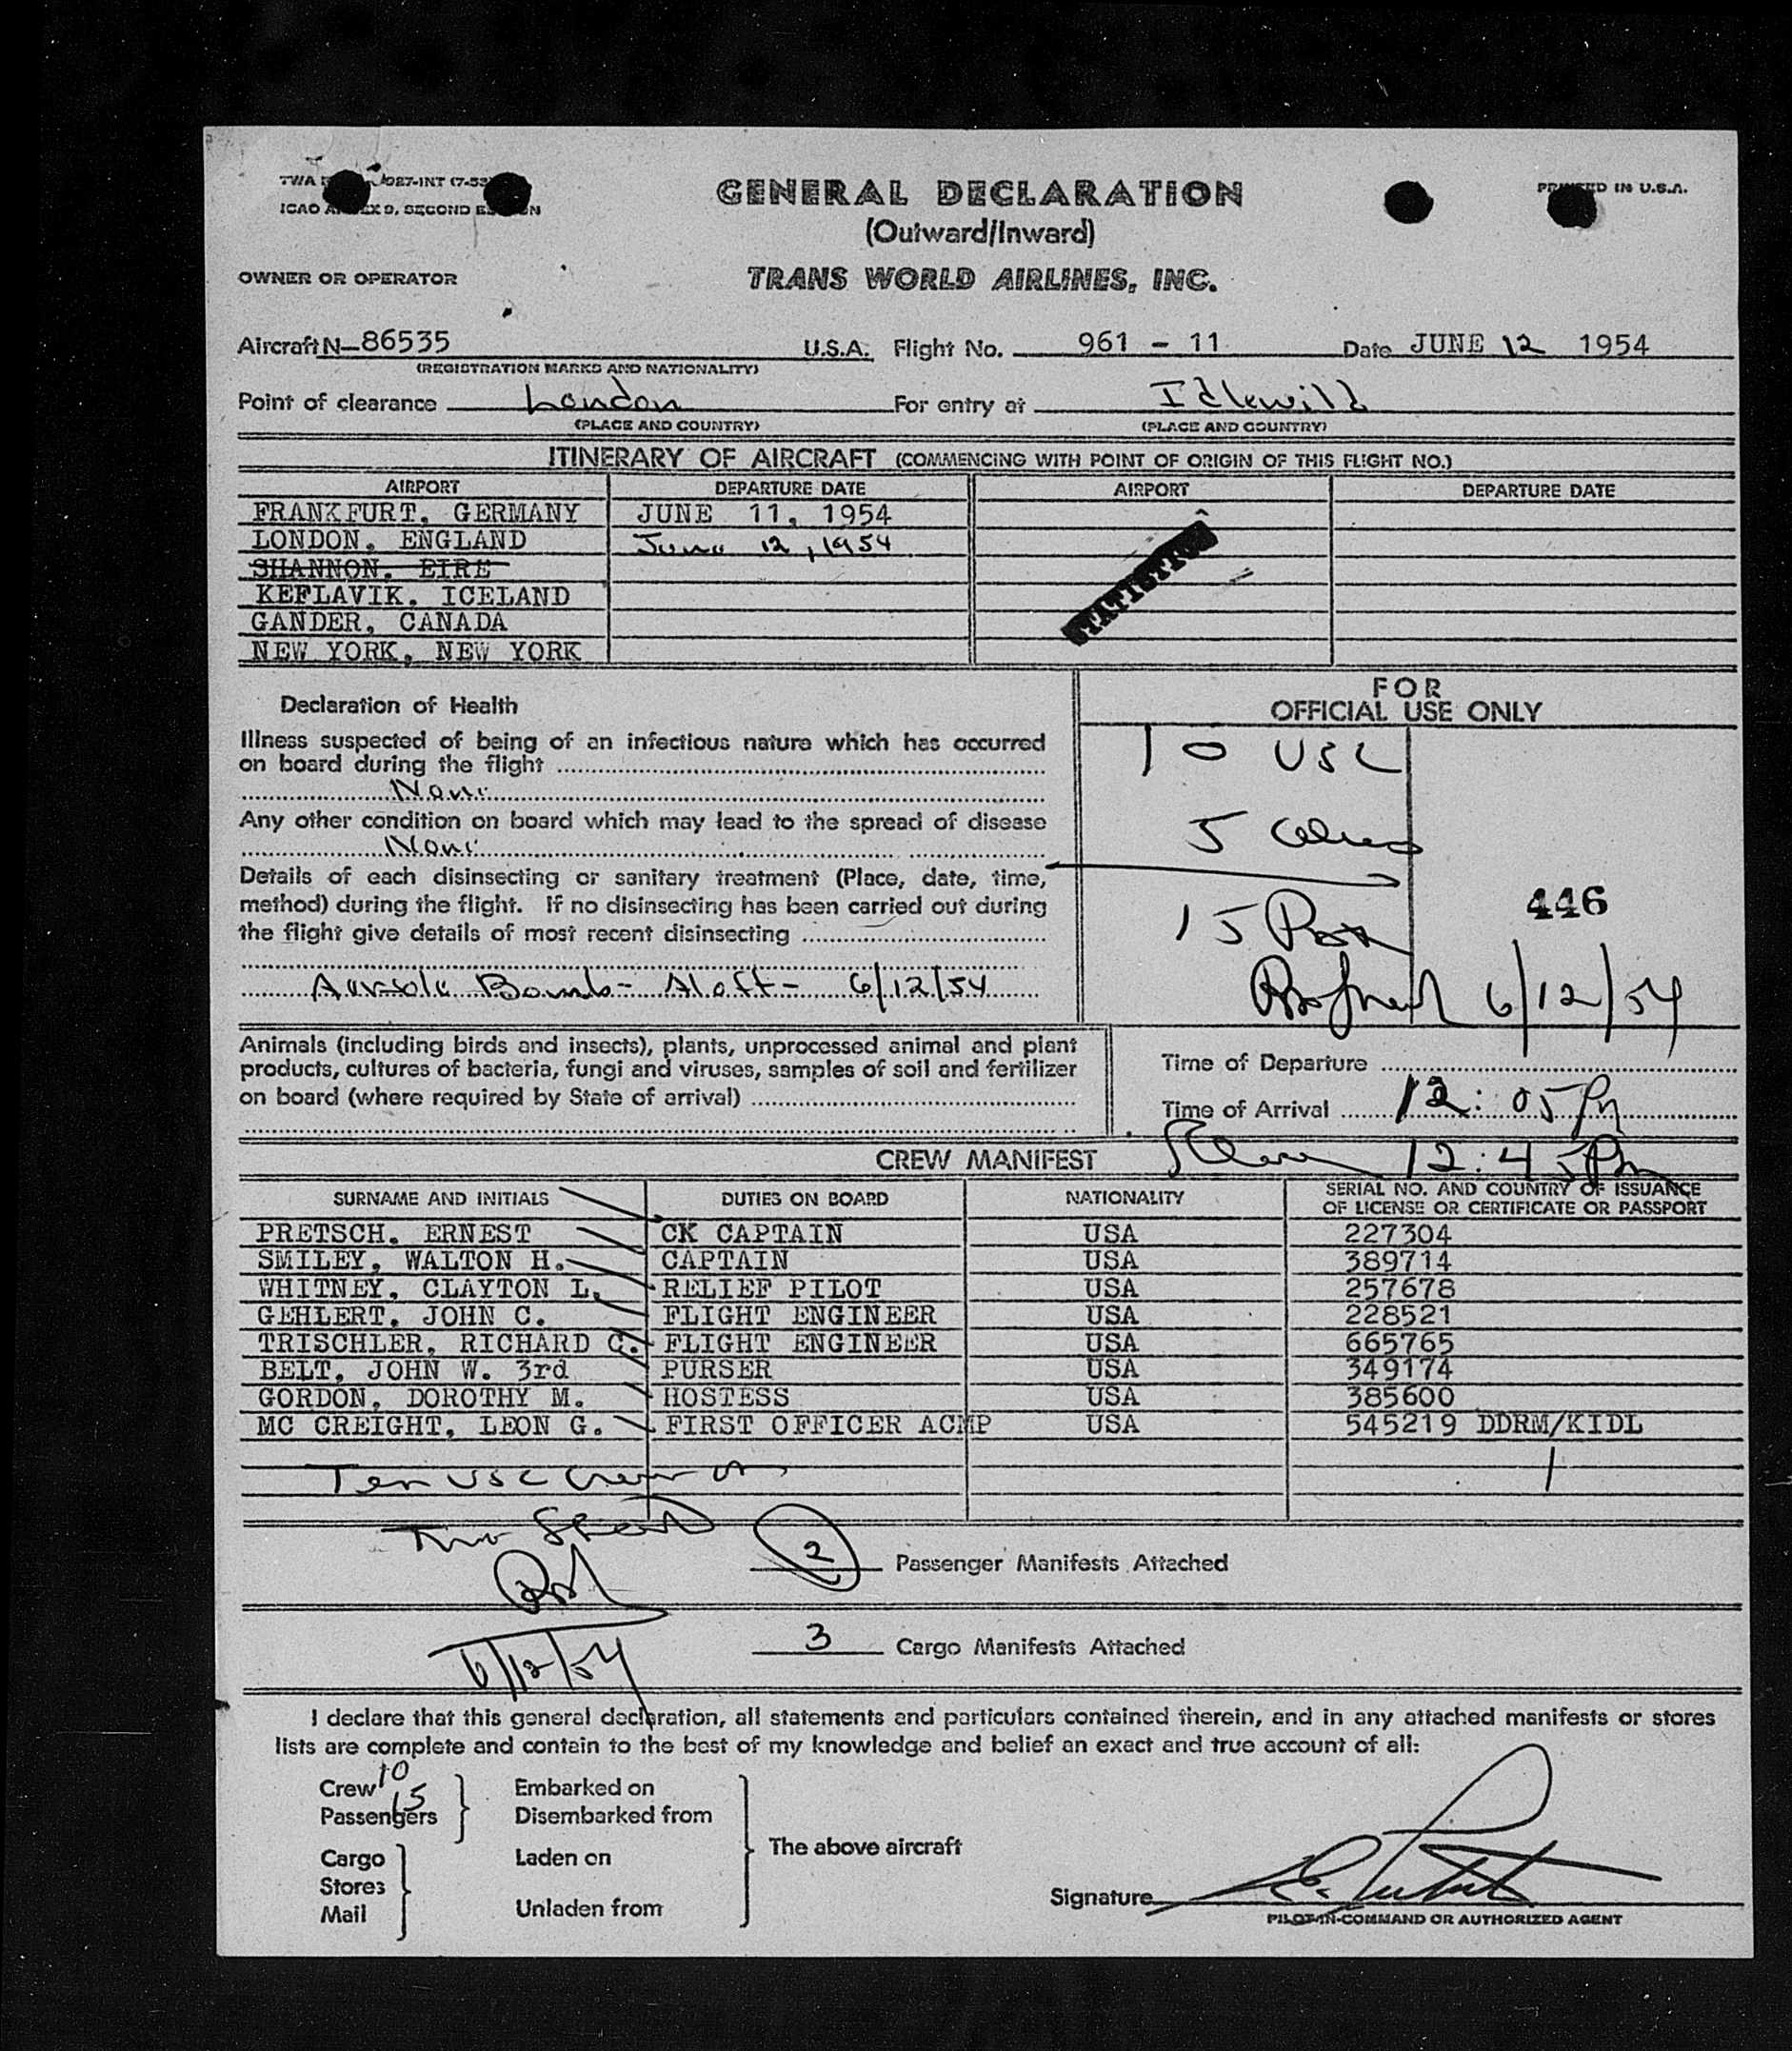 GENERAL DECLARATION
(Outward/Inward)
PRINTED IN U.S.A.
OWNER OR OPERATOR
TRANS WORLD AIRLINES, INC.
Aircraft N-86535 U.S.A. Flight No. 961 - 11 Date JUNE 12 1954
(REGISTRATION MARKS AND NATIONALITY)
Point of clearance London For entry at Idlewild
(PLACE AND COUNTRY) (PLACE AND COUNTRY)
ITINERARY OF AIRCRAFT (COMMENCING WITH POINT OF ORIGIN OF THIS FLIGHT NO.)
AIRPORT DEPARTURE DATE AIRPORT DEPARTURE DATE
FRANKFURT, GERMANY JUNE 11, 1954
LONDON, ENGLAND June 12, 1954
SHANNON, EIRE
KEFLAVIK, ICELAND
GANDER, CANADA
NEW YORK, NEW YORK
Declaration of Health
Illness suspected of being of an infectious nature which has occurred
on board during the flight
None
Any other condition on board which may lead to the spread of disease
None
Details of each disinsecting or sanitary treatment (Place, date, time,
method) during the flight. If no disinsecting has been carried out during
the flight give details of most recent disinsecting
Bomb- Aloft- 6/12/54
FOR
OFFICIAL USE ONLY
10 USC
5
15
446
6/12/54
Animals (including birds and insects), plants, unprocessed animal and plant
products, cultures of bacteria, fungi and viruses, samples of soil and fertilizer
on board (where required by State of arrival)
Time of Departure
Time of Arrival 12:05 Pm
12:45 Pm
CREW MANIFEST
SURNAME AND INITIALS DUTIES ON BOARD NATIONALITY SERIAL NO. AND COUNTRY OF ISSUANCE OF LICENSE OR CERTIFICATE OR PASSPORT
PRETSCH, ERNEST CK CAPTAIN USA 227304
SMILEY, WALTON H. CAPTAIN USA 389714
WHITNEY, CLAYTON L. RELIEF PILOT USA 257678
GEHLERT, JOHN C. FLIGHT ENGINEER USA 228521
TRISCHLER, RICHARD C. FLIGHT ENGINEER USA 665765
BELT, JOHN W. 3rd PURSER USA 349174
GORDON, DOROTHY M. HOSTESS USA 385600
MC CREIGHT, LEON G. FIRST OFFICER ACMP USA 545219 DDRM/KIDL
Ten USC Crew on
2 Passenger Manifests Attached
3 Cargo Manifests Attached
6/12/54
I declare that this general declaration, all statements and particulars contained therein, and in any attached manifests or stores
lists are complete and contain to the best of my knowledge and belief an exact and true account of all:
Crew 10 Embarked on
Passengers 15 Disembarked from
The above aircraft
Cargo Laden on
Stores
Mail Unladen from
Signature
PILOT-IN-COMMAND OR AUTHORIZED AGENT